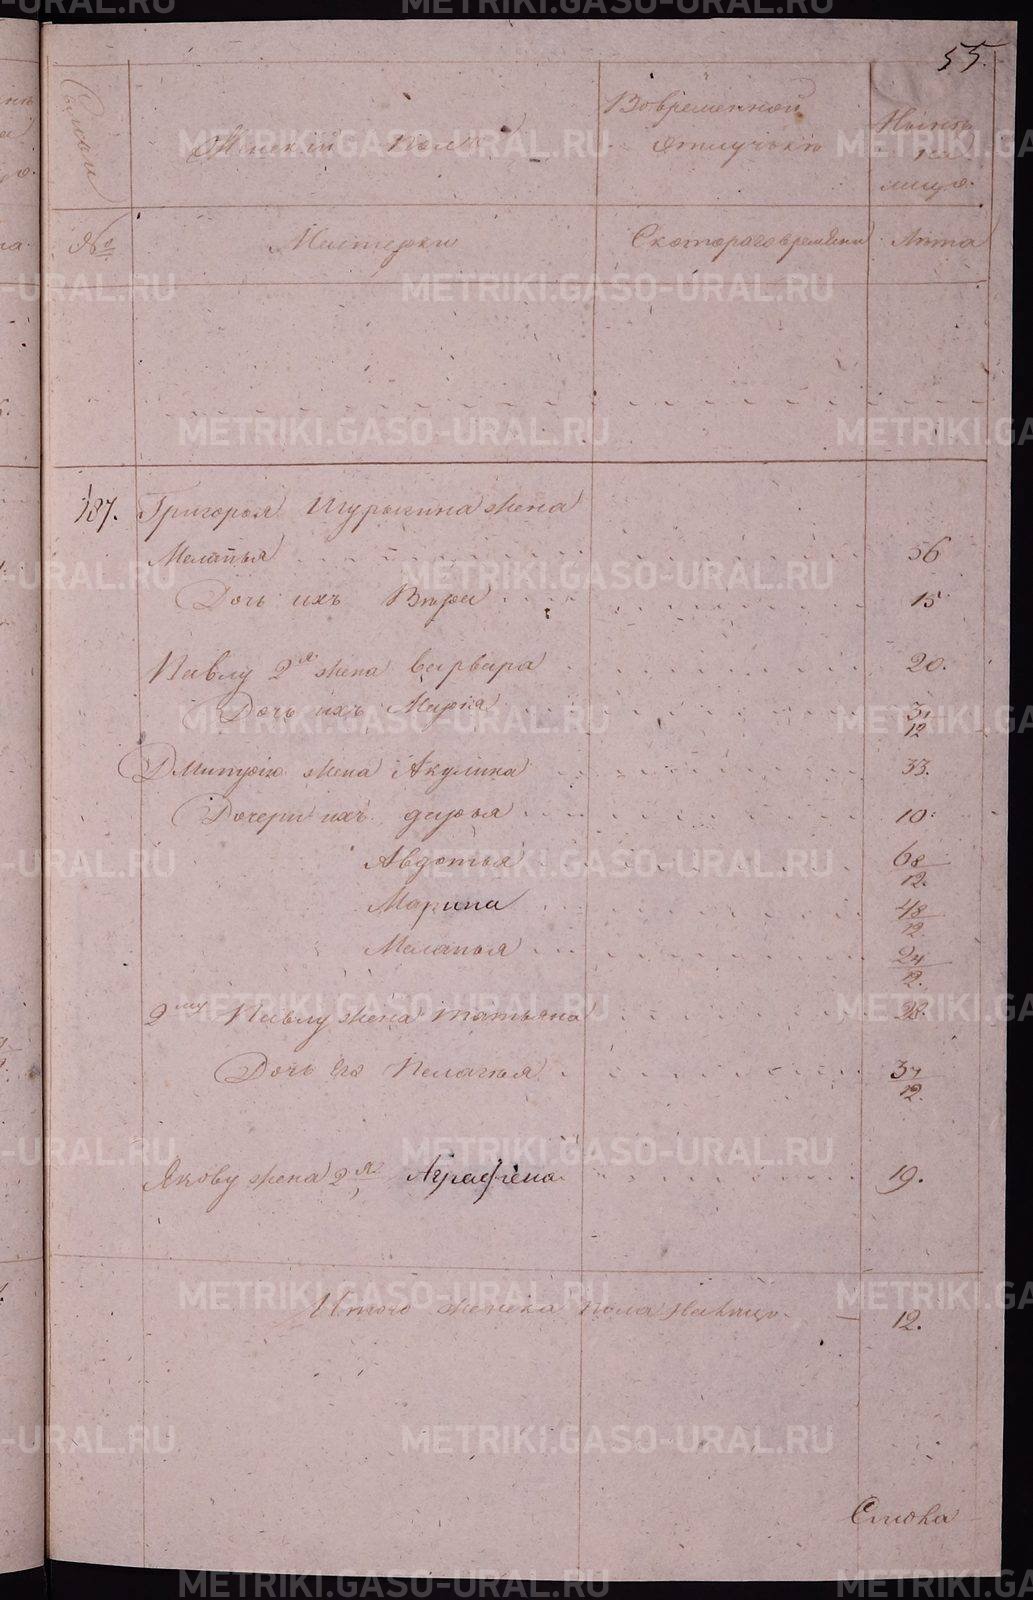 55.
Семьи
Женскій полъ
Вовременной
отлучькѣ
Нынѣ
на
лицо.
№
Мастерки
Скотораговремѣни
Лѣта
187.
Григорья Шурыгина жена
Меланья 56
Дочь ихъ Вѣра 15
Павлу 2я жена варвара 20.
Дочь ихъ Марѳа 3/12
Дмитрію жена Акулина 33.
Дочери ихъ дарья 10.
Авдотья 68/12.
Марина 48/12.
Меланья 24/12.
2му Павлу жена татьяна 28.
Дочь Его Пелагѣя 3/12.
Якову жена 2я Аграфѣна 19.
Итого женска пола налицо 12.
METRIKI.GASO-URAL.RU